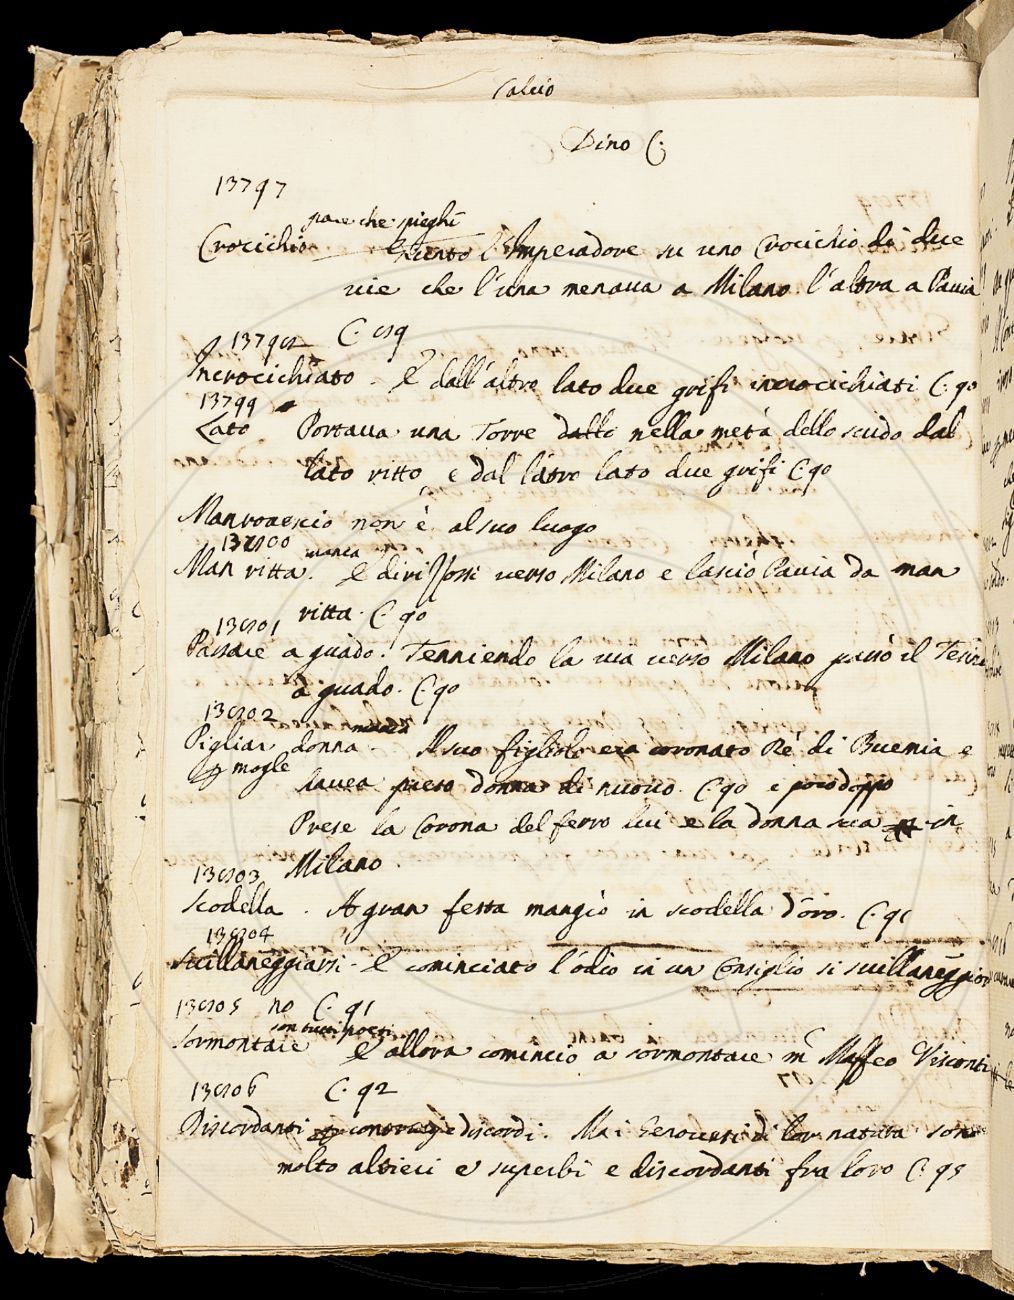 Calcio
Dino C.
13797
pare che pieghi
Crocichio Giunto l'Imperadore su uno Crocichio di due
vie che l'una menava a Milano l'altra a Pavia
13798 C. 89
Incrocichiato. E dall'altro lato due grifi incrocichiati C. 90
13799
Lato Portava una Torre dallo nella metà dello scudo dal
lato ritto, e dal l'atro lato due grifi C. 90
Manrovescio non è al suo luogo
13800 manca
Man ritta. E dirissosi verso Milano e lasciò Pavia da man
ritta. C. 90
13801
Passare a guado. Tenniendo la via verso Milano passò il Tesino
a guado. C. 90
13802
Pigliar donna. Il suo figliolo era coronato Rè di Buemia e
p mogle
havea preso donna di nuovo. C. 90 e poco doppo
Prese la Corona del ferro lui e la donna sua in
Milano.
13803
Scodella. A gran festa mangiò in scodella d'oro. C. 91
13804
Svillaneggiarsi. E cominciato l'ódio in un Consiglio si svillaneggior
13805 no C. 91
son tutti posti
Sormontare E allora cominciò a sormontare mr Maffeo Visconti
13806 C. 92
Discordanti discordi. Ma i Genovesi di lor natura sono
molto altieri e superbi e discordanti fra loro C. 95